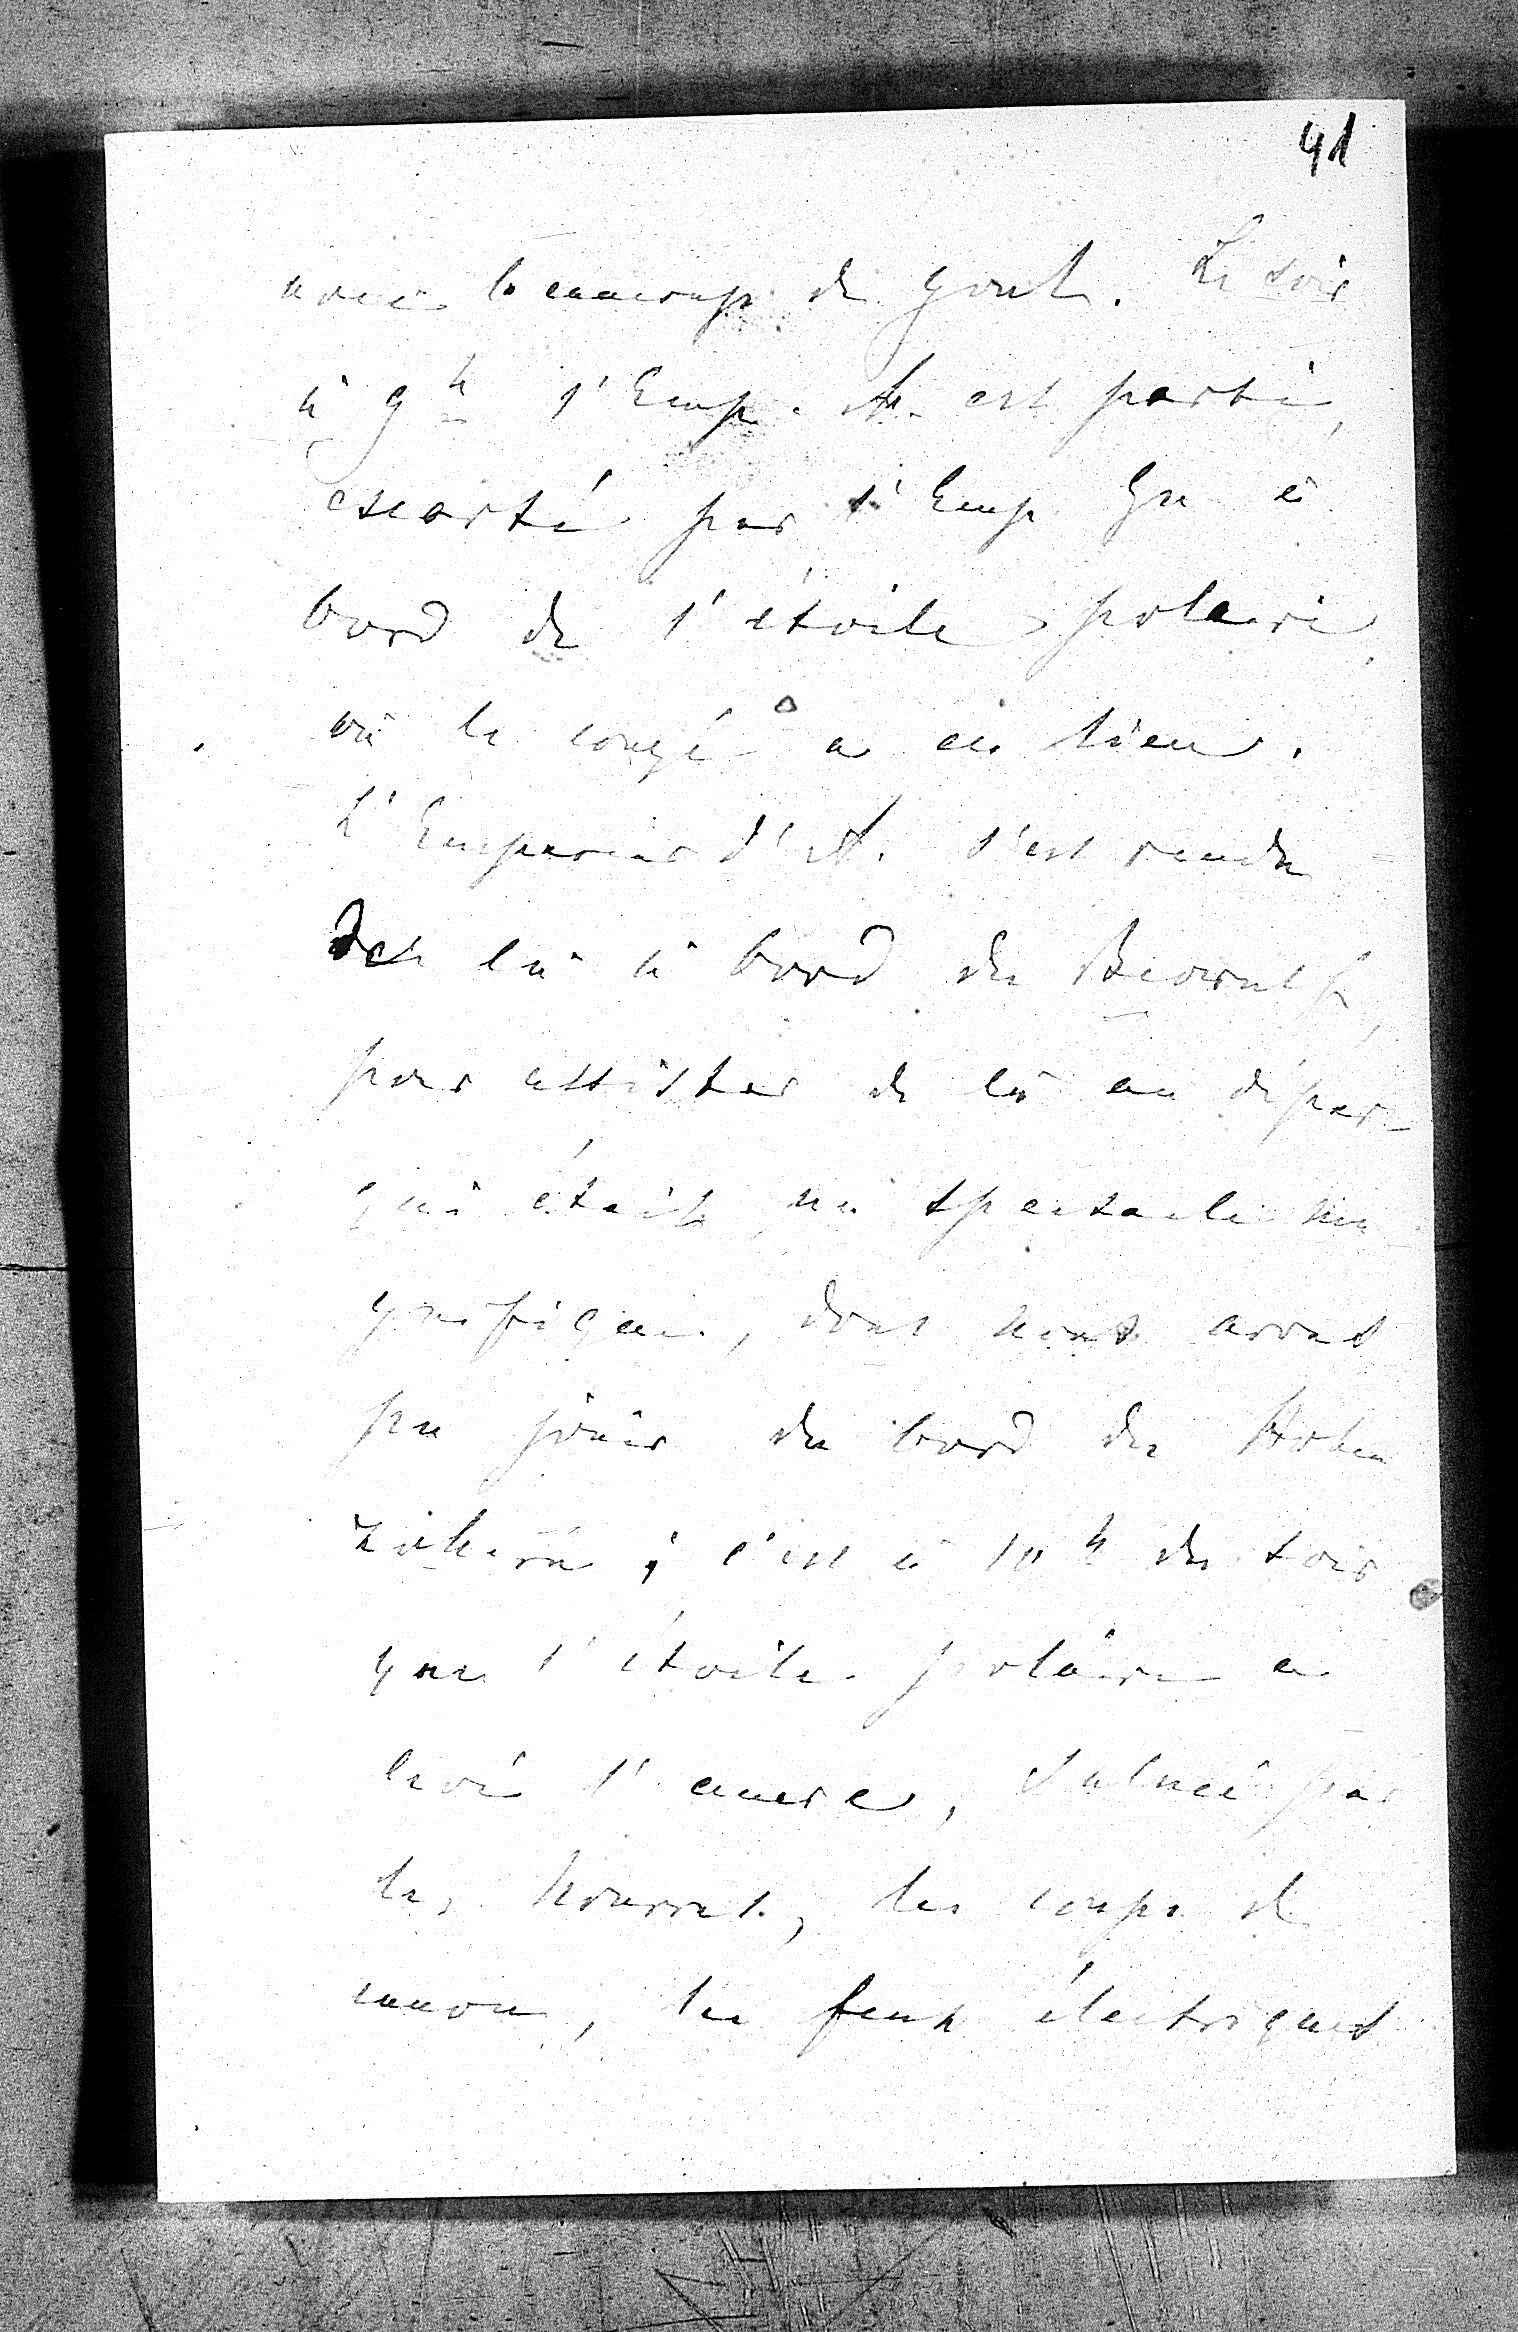 41
avec beaucoup de gout. Le soir
à 9h l'Emp. A. est parti,
escorté par l'Emp Gu à
bord de l'étoile polaire,
où le congé a eu lieu.
L'Empereur d'A. s'est rendu
de là à bord du Beowulf,
pour assister de là au départ
qui était un spectacle ma
gnifique, dont nous avons
pu jouir du bord du Hohen
zollern; c'est à 10h du soir
que l'étoile polaire a
levé l'ancre, saluée par
les hourras, les coups de
canon, les feux électriques